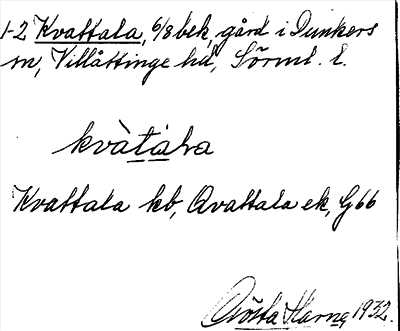 1-2 Kvattala, 6/8 bek, gård i Dunkers
sn, Villåttinge hd, Sörml. l.
kvàtàla
Kvattala kb, Qvattala ek, G66
Gösta Harng 1932.